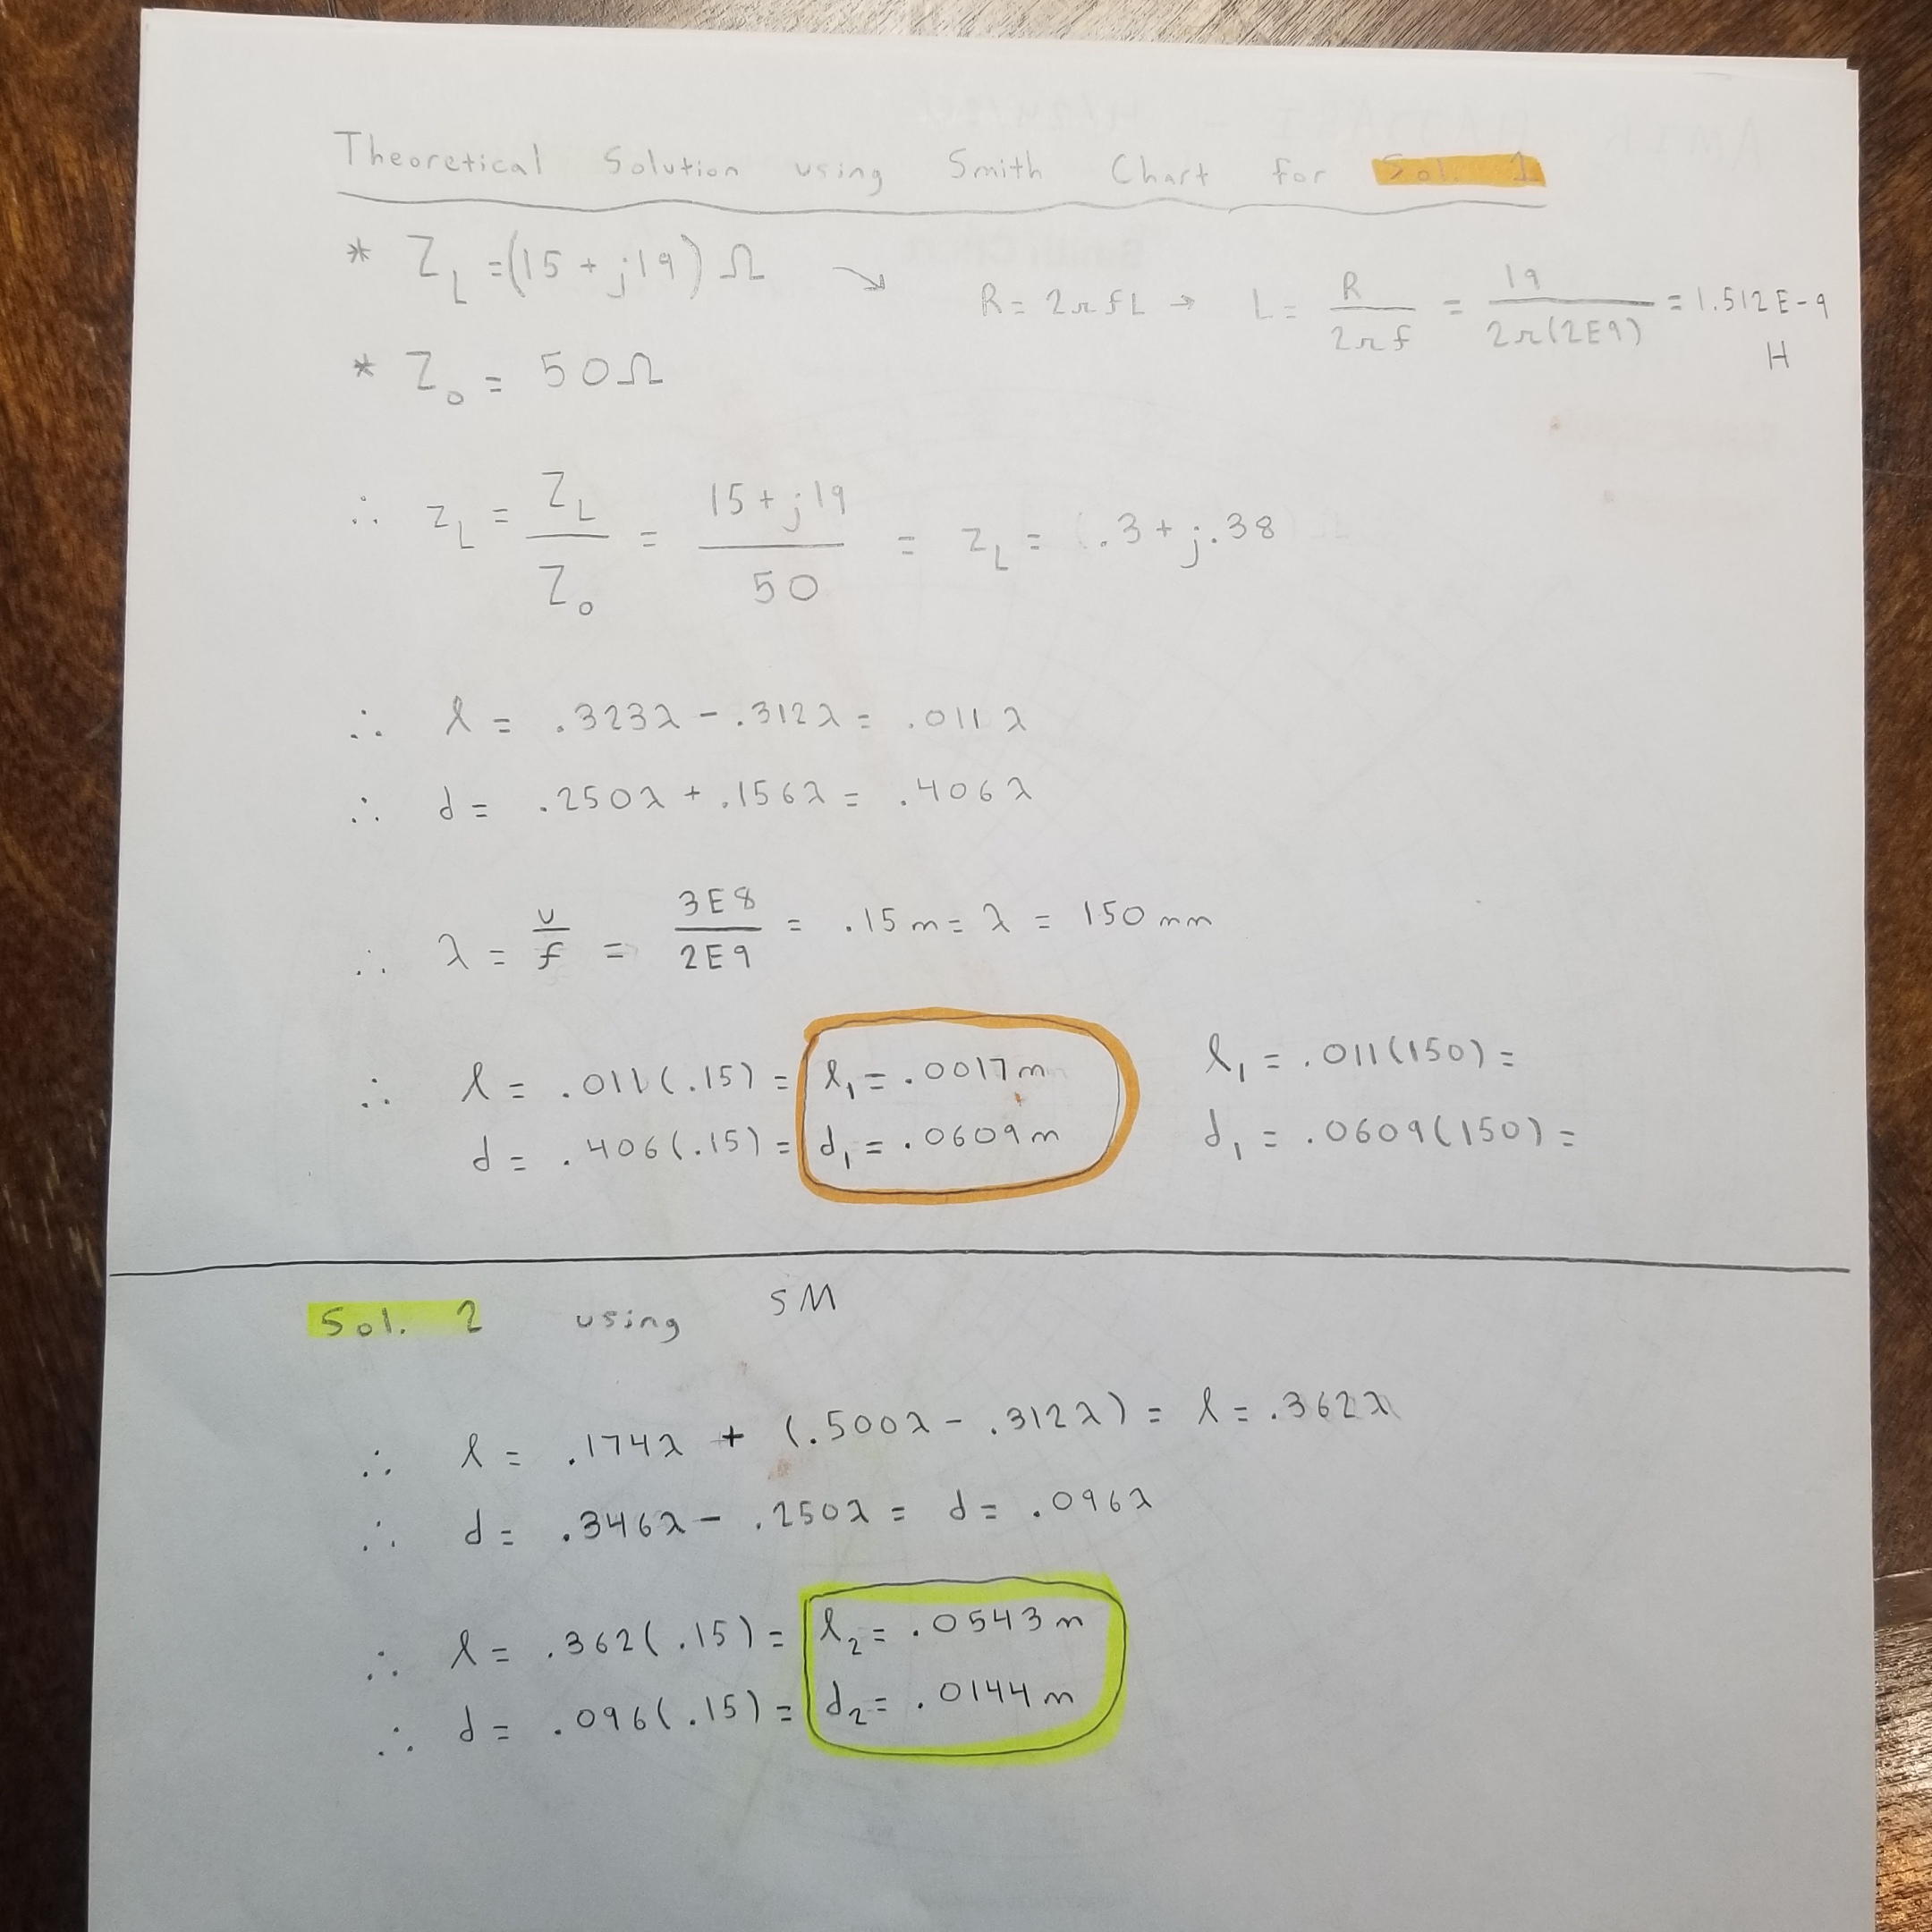 Theoretical Solution using Smith Chart for Sol. 1
* Z_L = (15 + j19) Ω ↘ R = 2πfL → L = R/(2πf) = 19/(2π(2E9)) = 1.512E-9 H
* Z_0 = 50Ω
∴ z_L = Z_L/Z_0 = (15 + j19)/50 = z_L = .3 + j.38
∴ l = .323λ - .312λ = .011λ
∴ d = .250λ + .156λ = .406λ
∴ λ = υ/f = 3E8/2E9 = .15m = λ = 150mm
∴ l = .011(.15) = l_1 = .0017m l_1 = .011(150) =
d = .406(.15) = d_1 = .0609m d_1 = .0609(150) =
Sol. 2 using SM
∴ l = .174λ + (.500λ - .312λ) = l = .362λ
∴ d = .346λ - .250λ = d = .096λ
∴ l = .362(.15) = l_2 = .0543m
∴ d = .096(.15) = d_2 = .0144m